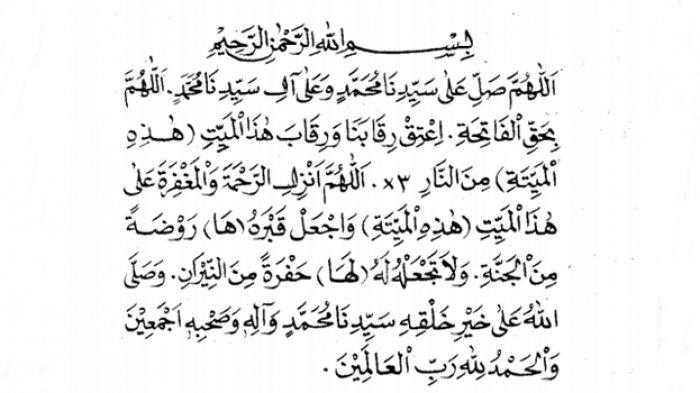 بِسْــــمِ اللهِ الرَّحْمٰنِ الرَّحِيْمِ
اَللّٰهُمَّ صَلِّ عَلٰى سَيِّدِنَا مُحَمَّدٍ وَعَلٰى اٰلِ سَيِّدِنَا مُحَمَّدٍ. اَللّٰهُمَّ
بِحَقِّ الْفَاتِحَةِ. اِعْتِقْ رِقَابَنَا وَرِقَابَ هٰذَا الْمَيِّتِ (هٰذِهِ
الْمَيِّتَةِ) مِنَ النَّارِ ×٣. اَللّٰهُمَّ اَنْزِلِ الرَّحْمَةَ وَالْمَغْفِرَةَ عَلٰى
هٰذَا الْمَيِّتِ (هٰذِهِ الْمَيِّتَةِ) وَاجْعَلْ قَبْرَهُ (هَا) رَوْضَةً
مِنَ الْجَنَّةِ. وَلَا تَجْعَلْهُ لَهُ (لَهَا) حُفْرَةً مِنَ النِّيْرَانِ. وَصَلَّى
اللهُ عَلٰى خَيْرِ خَلْقِهِ سَيِّدِنَا مُحَمَّدٍ وَآلِهِ وَصَحْبِهِ اَجْمَعِيْنَ
وَالْحَمْدُ لِلّٰهِ رَبِّ الْعَالَمِيْنَ.